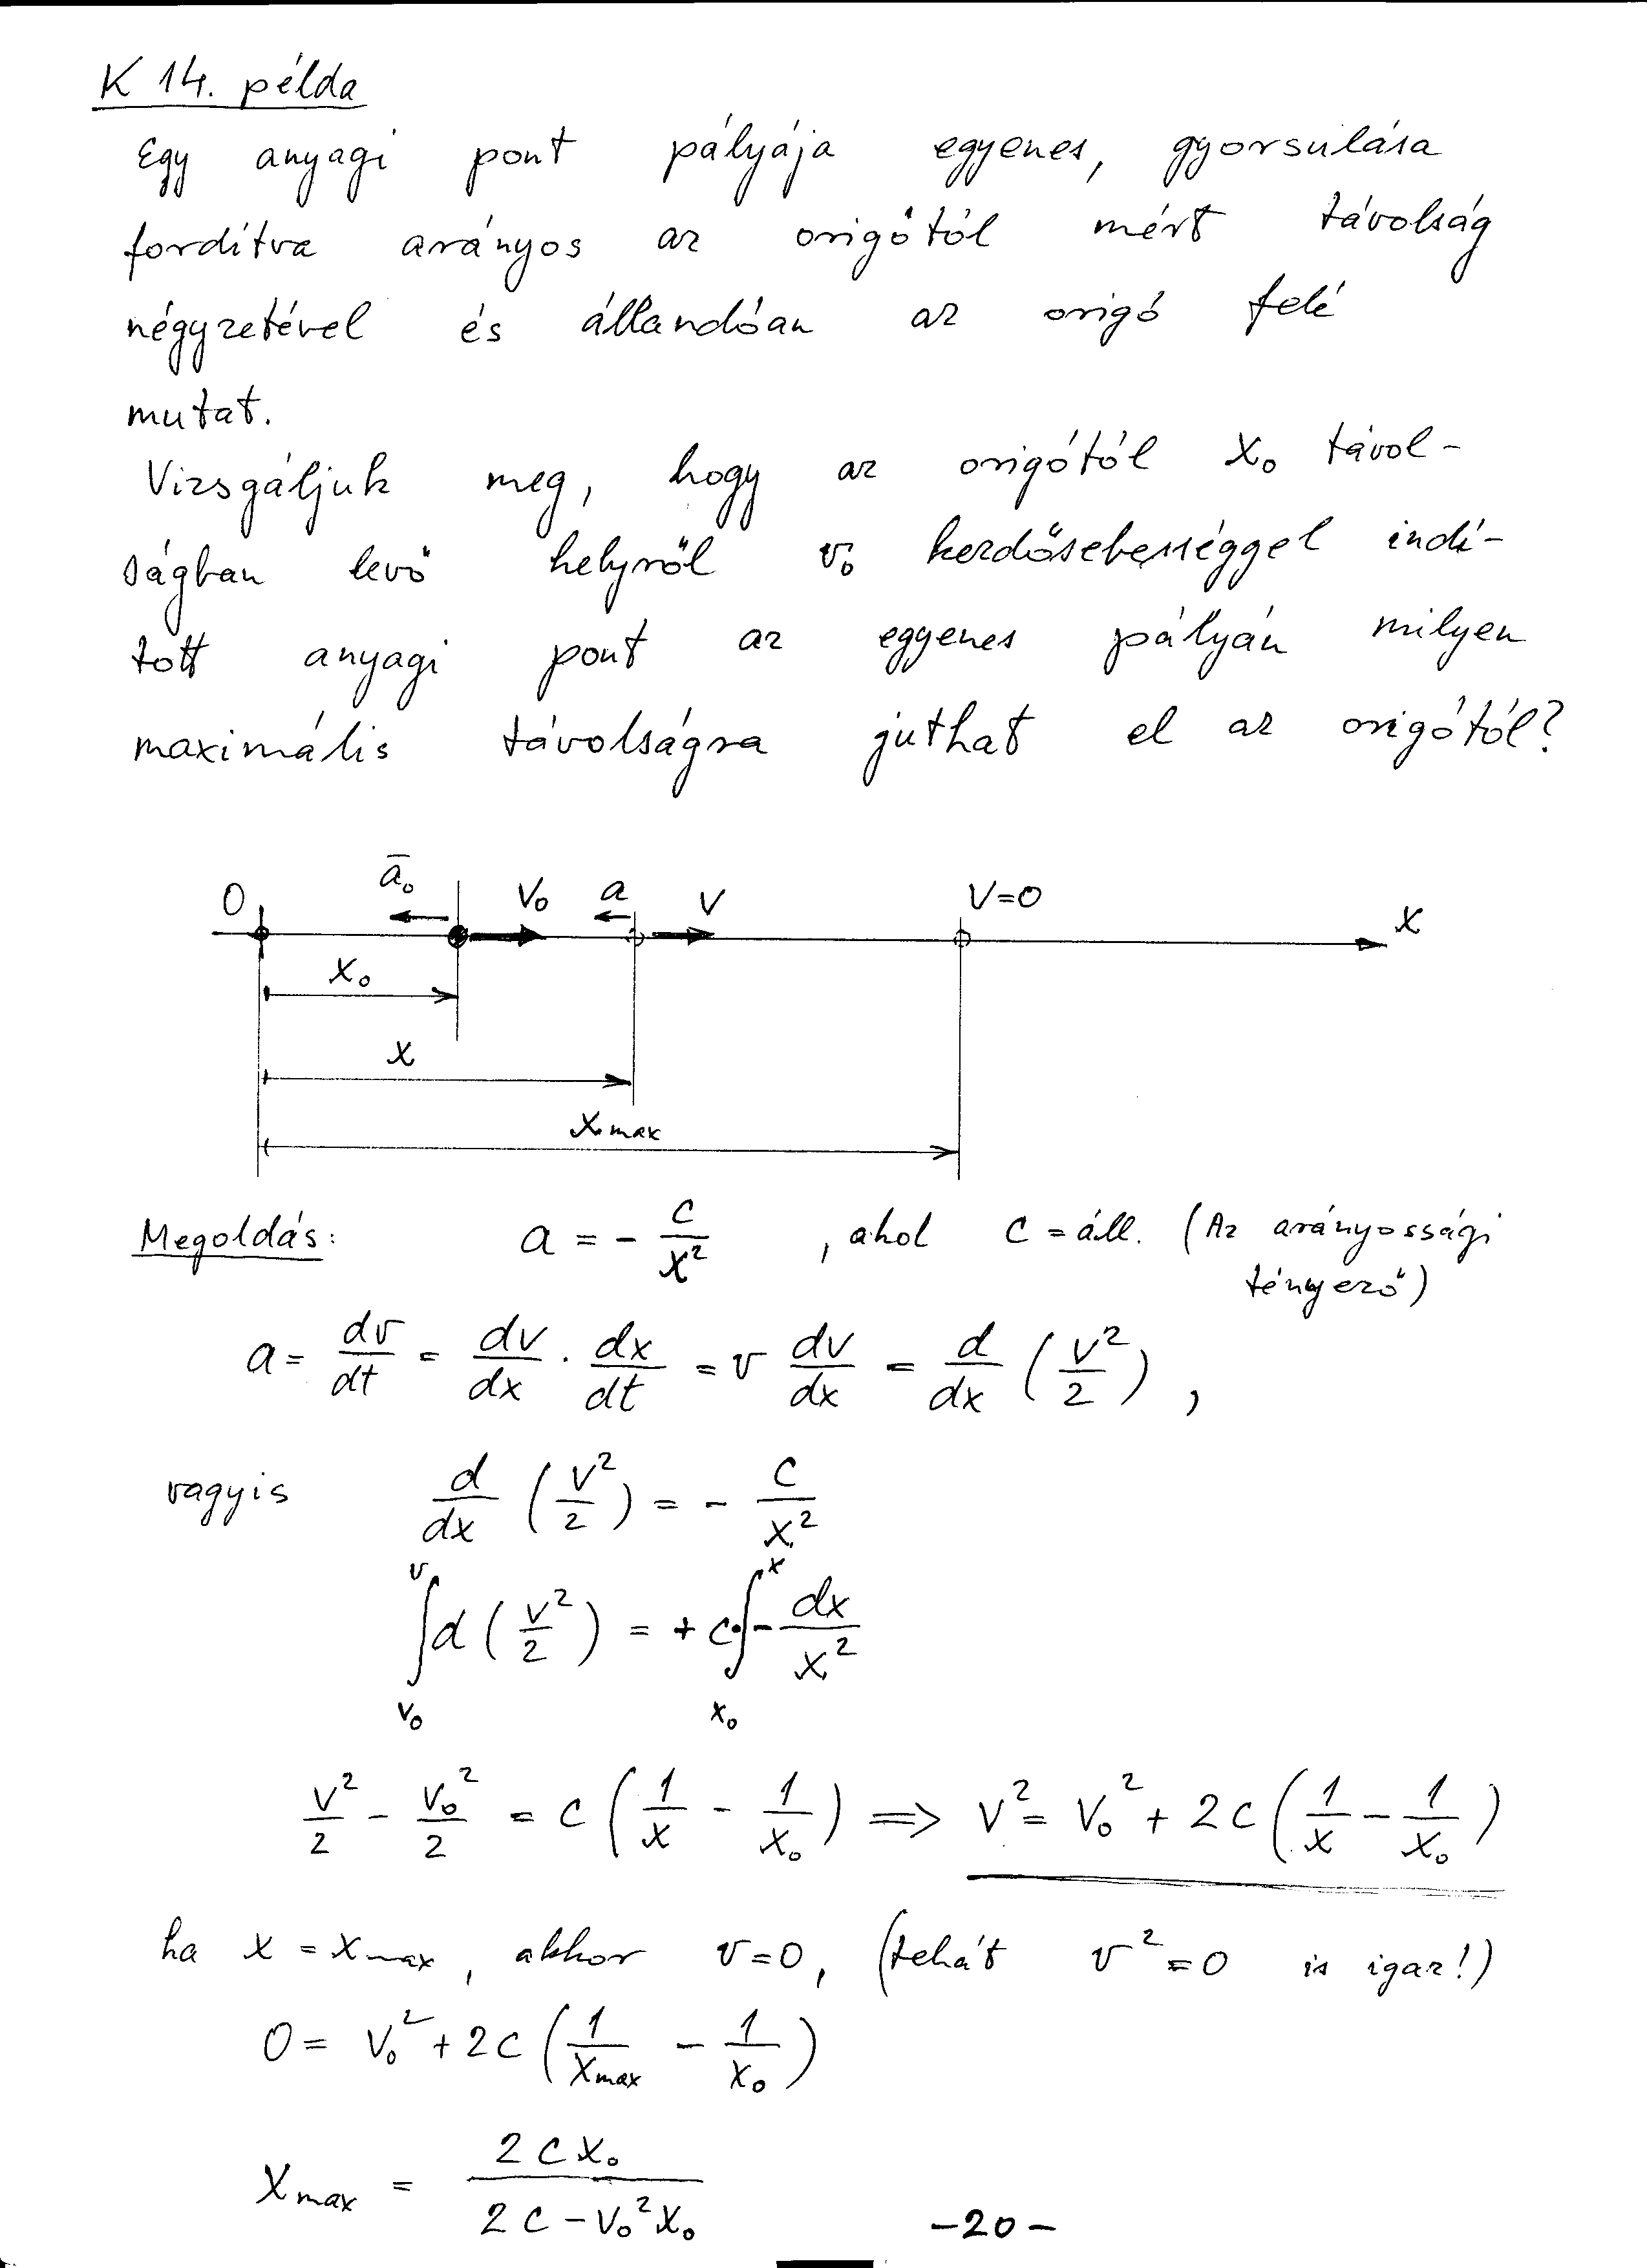 K 14. példa
Egy anyagi pont pályája egyenes, gyorsulása
fordítva arányos az origótól mért távolság
négyzetével és állandóan az origó felé
mutat.
Vizsgáljuk meg, hogy az origótól x₀ távol-
ságban levő helyről v₀ kezdősebességgel indí-
tott anyagi pont az egyenes pályán milyen
maximális távolságra juthat el az origótól?
0 a̅₀ v₀ a v v=0 x
x₀
x
x max
Megoldás: a = - c/x² , ahol c = áll. (Az arányossági
tényező)
a = dv/dt = dv/dx · dx/dt = v dv/dx = d/dx (v²/2) ,
vagyis d/dx (v²/2) = - c/x²
∫_{v₀}^{v} d(v²/2) = + c·∫_{x₀}^{x} - dx/x²
v²/2 - v₀²/2 = c (1/x - 1/x₀) ⟹ v² = v₀² + 2c (1/x - 1/x₀)
ha x = x max, akkor v=0, (tehát v² = 0 is igaz!)
0 = v₀² + 2c (1/x max - 1/x₀)
x max = 2cx₀/(2c - v₀²x₀)
-20-